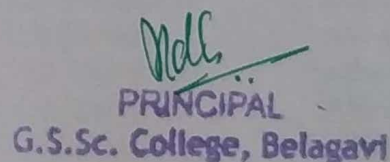 PRINCIPAL
G.S.Sc. College, Belagavi